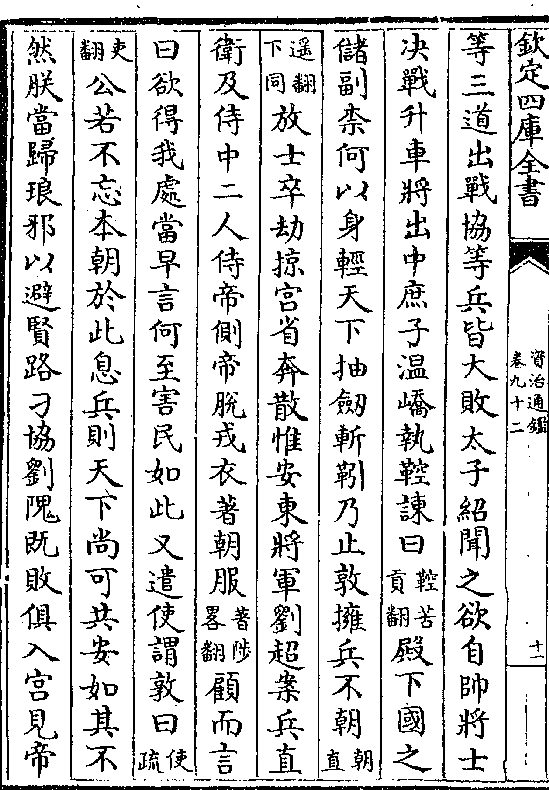 欽定四庫全書
資治通鑑
卷九十二
十一
等三道出戰協等兵皆大敗太子紹聞之欲自帥將士
决戰升車將出中庶子温嶠執鞚諫曰鞚苦貢翻殿下國之
儲副柰何以身輕天下抽劒斬靷乃止敦擁兵不朝朝直
遥翻下同放士卒劫掠宫省奔散惟安東將軍劉超案兵直
衛及侍中二人侍帝側帝脫戎衣著朝服著陟畧翻顧而言
曰欲得我處當早言何至害民如此又遣使謂敦曰使疏
吏翻公若不忘本朝於此息兵則天下尚可共安如其不
然朕當歸琅邪以避賢路刁協劉隗既敗俱入宫見帝